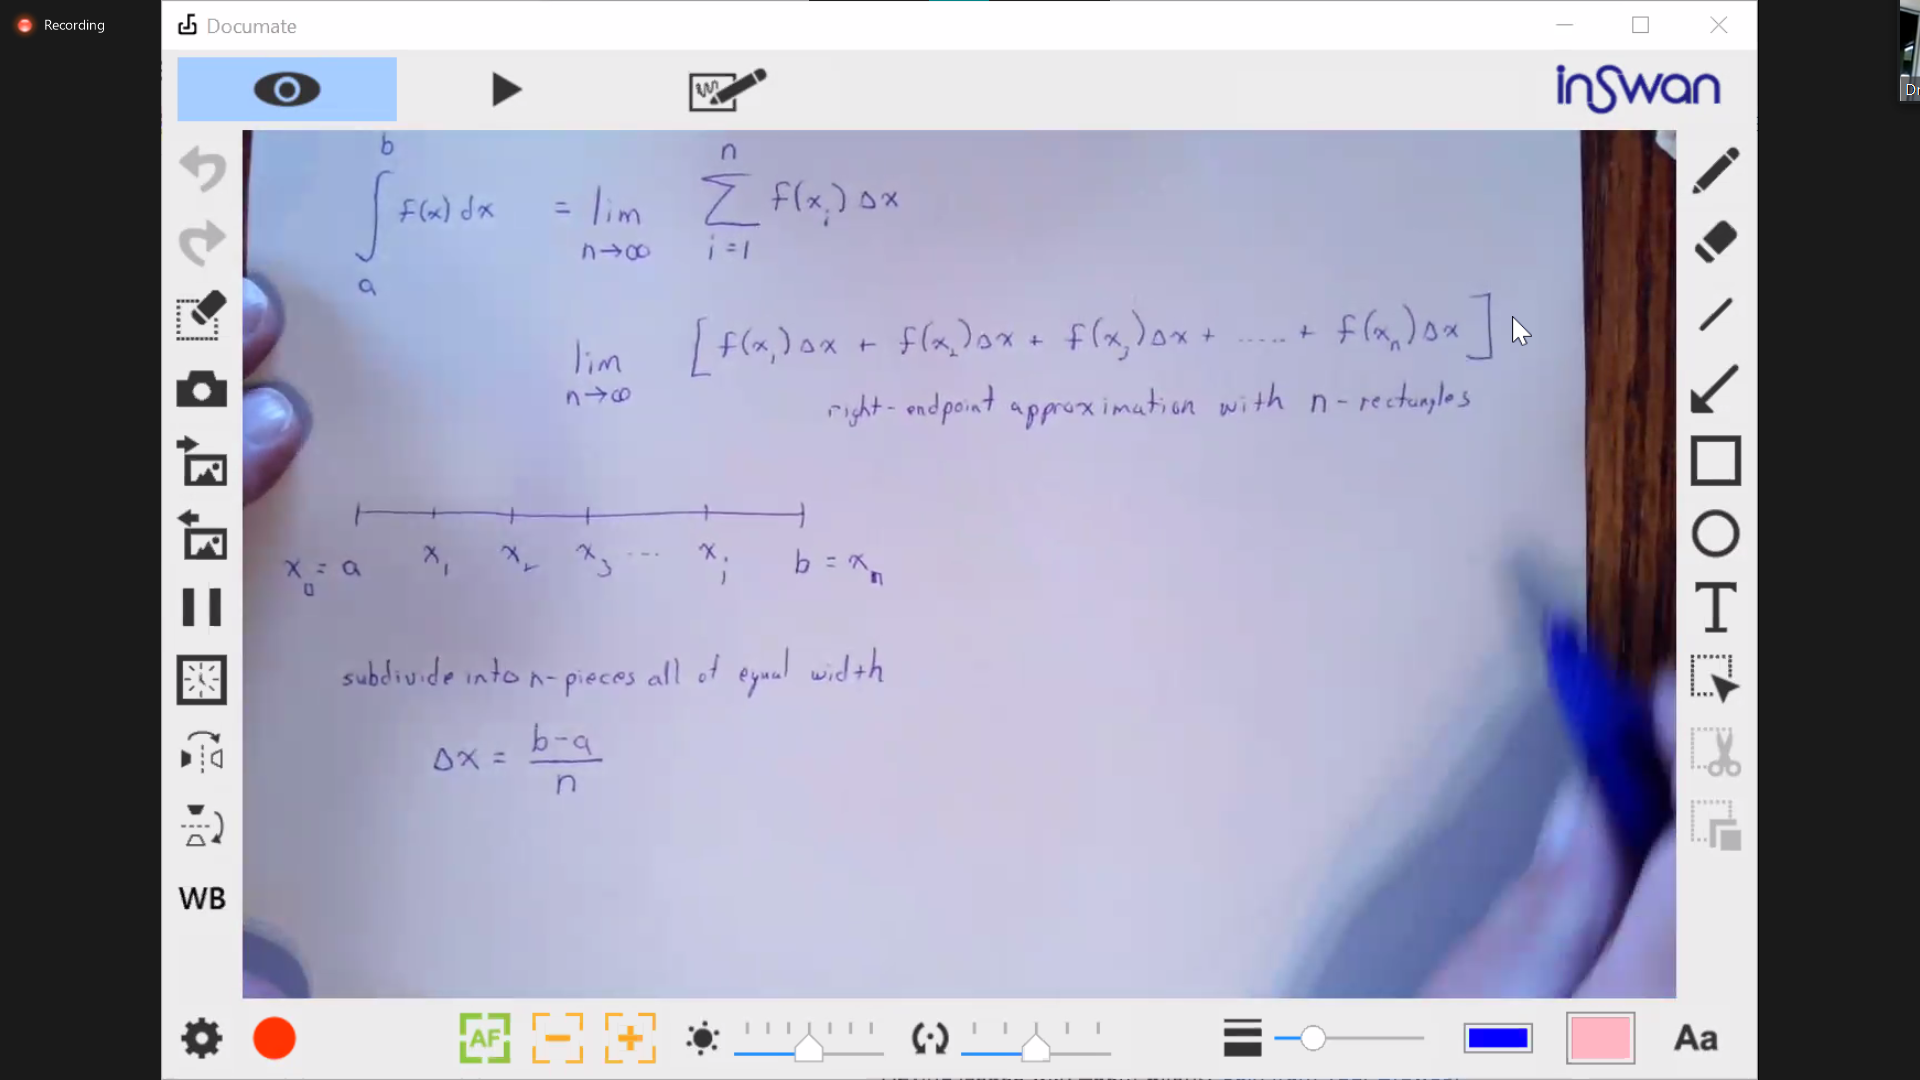 Recording
Documate
inswan
Dr
b
∫ f(x) dx = lim n→∞ n Σ i=1 f(xᵢ) Δx
a
lim n→∞ [ f(x₁) Δx + f(x₂) Δx + f(x₃) Δx + ..... + f(xₙ) Δx ]
right-endpoint approximation with n-rectangles
x₀ = a x₁ x₂ x₃ ... xᵢ b = xₙ
subdivide into n-pieces all of equal width
Δx = b-a / n
T
WB
AF
Aa